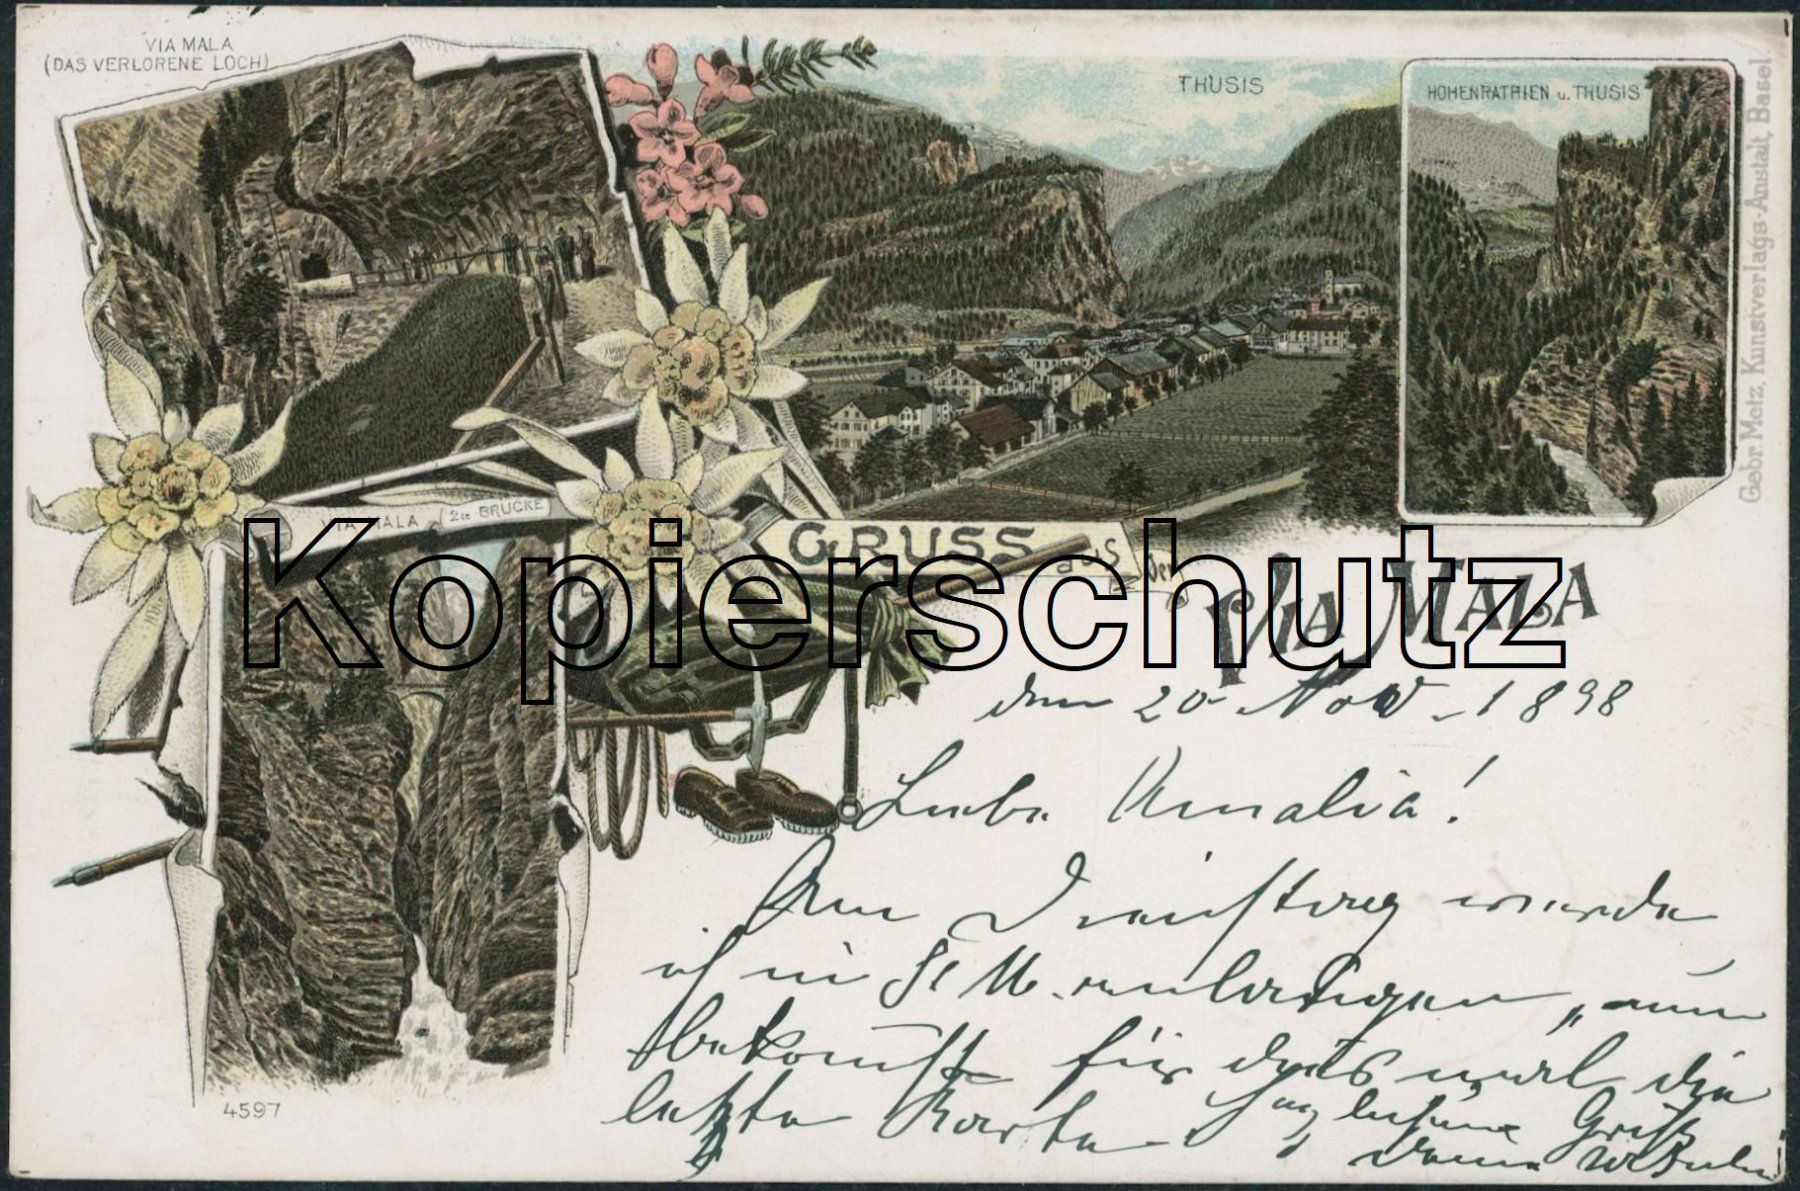 VIA MALA
(DAS VERLORENE LOCH)
THUSIS
HOHENRATHIEN u. THUSIS
Gebr. Metz, Kunstverlags-Anstalt, Basel
VIA MALA (2te BRÜCKE
GRUSS aus der
VIA MALA
Kopierschutz
den 20. Nov. 1898
Liebe Amalia!
Am Dienstag werde
ich in St M. anlangen, nun
bekommst für dies mal die
letzte Karte
4597